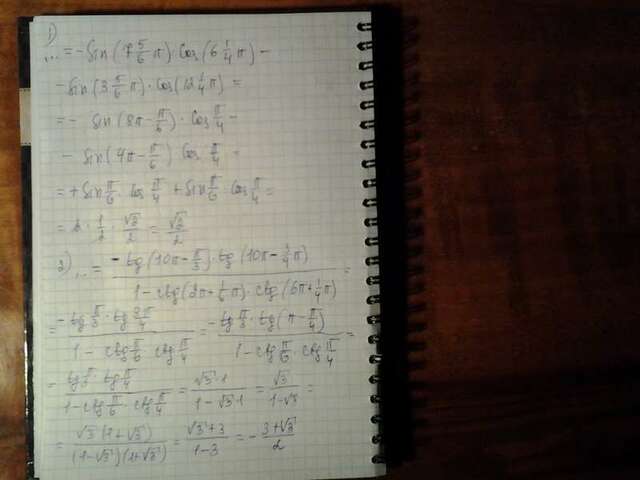 1)
... = -sin(7 5/6 π)·cos(6 1/4 π) -
- sin(3 5/6 π)·cos(12 1/4 π) =
= - sin(8π - π/6)·cos π/4 -
- sin(4π - π/6) cos π/4 =
= + sin π/6 · cos π/4 + sin π/6 cos π/4 =
= 2 · 1/2 · √2/2 = √2/2
2) ... = (-tg(10π - π/3)·tg(10π - 1/4 π)) / (1 - ctg(2π + 1/6 π)·ctg(6π + 1/4 π)) =
= (-tg π/3 · tg 3π/4) / (1 - ctg π/6 · ctg π/4) = (-tg π/3 · tg(π - π/4)) / (1 - ctg π/6 · ctg π/4) =
= (tg π/3 · tg π/4) / (1 - ctg π/6 · ctg π/4) = (√3·1) / (1 - √3·1) = √3 / (1 - √3) =
= (√3(1+√3)) / ((1-√3)(1+√3)) = (√3+3) / (1-3) = - (3+√3)/2